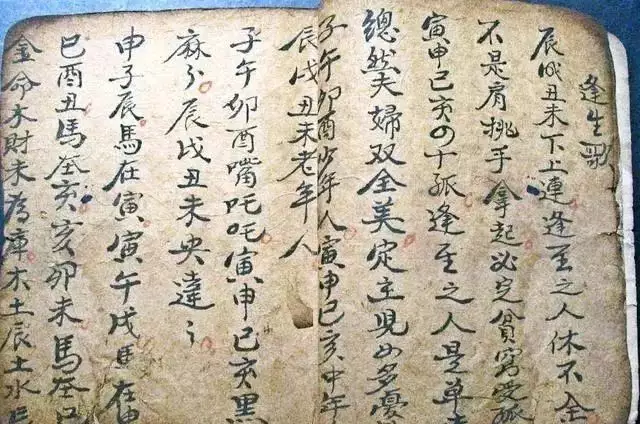 逢生歌
辰戌丑未下上連逢至之人休不全
不是肩挑手拿起必定貧窮受孤
寅申巳亥四十孤逢至之人是单
總然夫婦双全美定主見女多憂
子午卯酉少年人寅申巳亥中年
辰戌丑未老年人
子午卯酉嘴吒吒寅申巳亥黑
麻々辰戌丑未央違々
申子辰馬在寅寅午戌馬在
巳酉丑馬在亥亥卯未馬在
金命木財未為庫木土辰土水